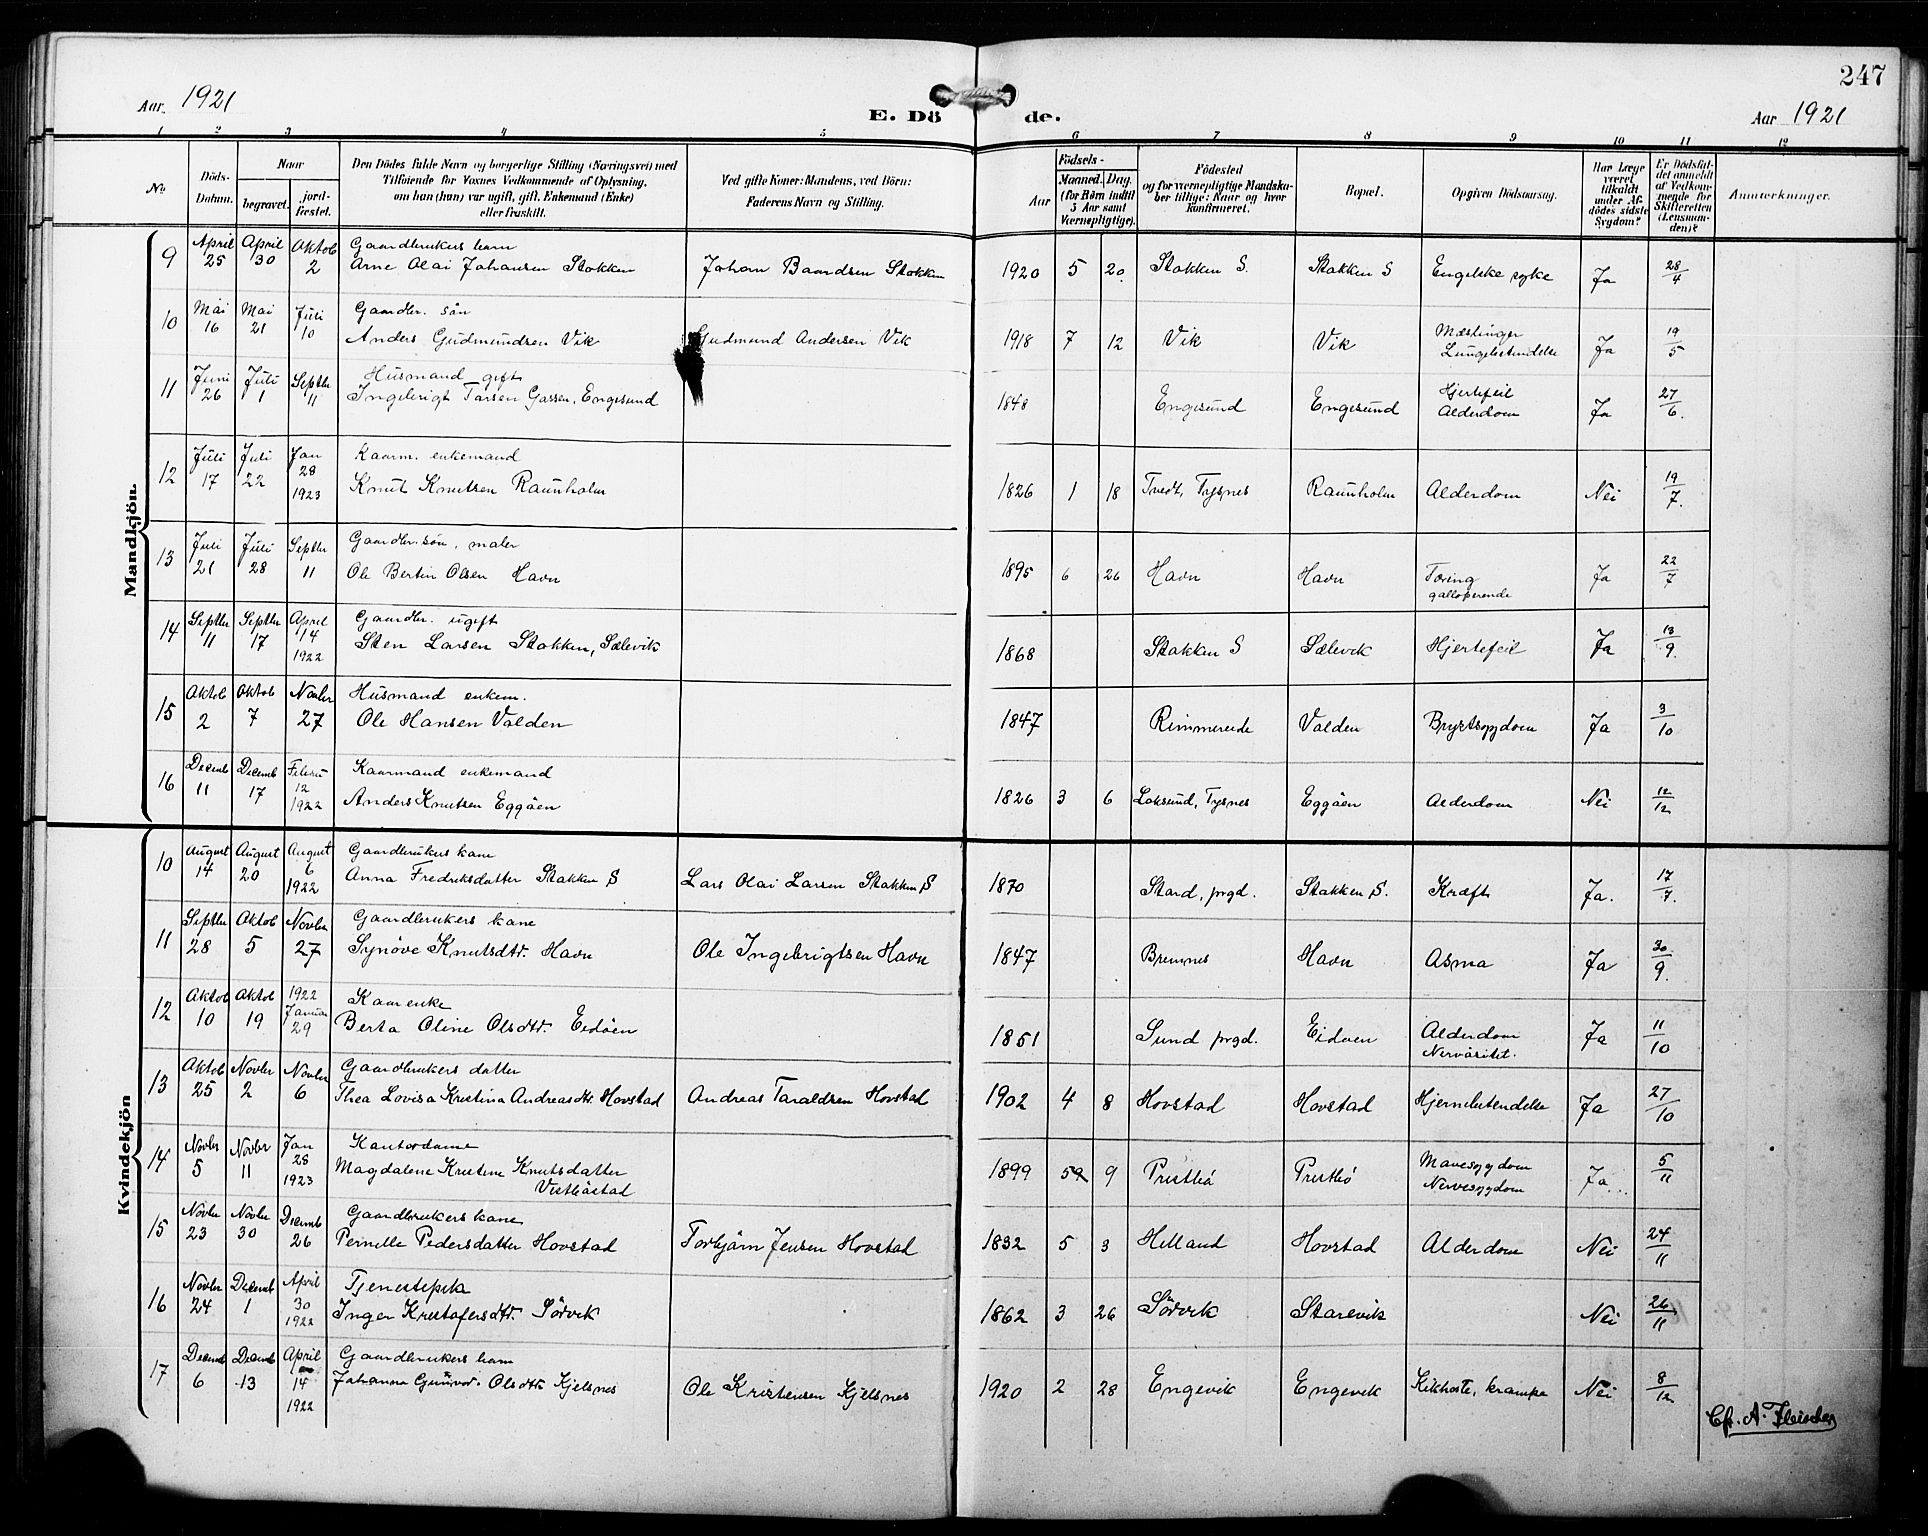 247
Aar 1921
E. Dö de.
Aar 1921
1 2 3 4 5 6 7 8 9 10 11 12
No
Döds-Datum.
Naar
begravet.
jord-fæstet.
Den Dödes fulde Navn og borgerlige Stilling (Næringsvei) med
Tilföiende for Voxnes Vedkommende af Oplysning,
om han (hun) var ugift, gift, Enkemand (Enke)
eller fraskilt.
Ved gifte Koner: Mandens, ved Börn:
Faderens Navn og Stilling.
Aar
Födsels-
Maaned. Dag.
(for Börn indtil
5 Aar samt
Værnepligtige).
Födested
og for værnepligtige Mandska-
ber tillige: Naar og hvor
konfirmeret.
Bopæl.
Opgiven Dödsaarsag.
Har Læge
været
tilkaldt
under Af-
dödes sidste
Sygdom?
Er Dödsfal-
det anmeldt
af Vedkom-
mende for
Skifteretten
(Lensman-
den)?
Anmærkninger.
Mandkjön.
9 April 25 April 30 Oktob 2 Gaardbrukers barn
Arne Olai Johansen Stokken Johan Baardsen Stokken 1920 5 20 Stokken S. Stokken S Engelske syke Ja 28/4
10 Mai 16 Mai 21 Juli 10 Gaardbr. sön
Anders Gudmundsen Vik Gudmund Andersen Vik 1918 7 12 Vik Vik Mæslinger Lungebetendelse Ja 19/5
11 Juni 26 Juli 1 Septbr 11 Husmand gift
Ingebrigt Tarsen Gassen, Engesund 1848 Engesund Engesund Hjertefeil Alderdom Ja 27/6.
12 Juli 17 Juli 22 Jan 28 1923 Kaarm. enkemand
Knut Knutsen Raunholm 1826 1 18 Tvedt, Tysnes Raunholm Alderdom Nei 19/7.
13 Juli 21 Juli 28 Septbr 11 Gaardbr. sön, maler
Ole Bertin Olsen Havn 1895 6 26 Havn Havn Tæring galloperende Ja 22/7
14 Septbr 11 Septbr 17 April 14 1922 Gaardbr. ugift
Sten Larsen Stokken, Sælevik 1868 Stokken S Sælevik Hjertefeil Ja 13/9.
15 Oktob 2 Oktob 7 Novbr 27 Husmand enkem.
Ole Hansen Valden 1847 Rimmereide Valden Brystsygdom Ja 3/10
16 Decemb 11 Decemb 17 Febru 12 1922 Kaarmand enkemand
Anders Knutsen Eggöen 1826 3 6 Loksund, Tysnes Eggöen Alderdom Nei 12/12
Kvindekjön
10 August 14 August 20 August 6 1922 Gaardbrukers kone
Anna Fredriksdatter Stokken S Lars Olai Larsen Stokken S 1870 Stord, prgd. Stokken S. Kræft Ja. 17/7.
11 Septbr 28 Oktob 5 Novbr 27 Gaardbrukers kone
Synöve Knutsdtr. Havn Ole Ingebrigtsen Havn 1847 Bremnes Havn Asma Ja 30/9.
12 Oktob 10 Oktob 19 1922 Januar 29 Kaarenke
Berta Oline Olsdtr. Eidöen 1851 Sund prgd. Eidöen Alderdom Nervösitet. Ja 11/10
13 Oktob 25 Novbr 2 Novbr 6 Gaardbrukers datter
Thea Lovisa Kristina Andreasdtr. Hovstad Andreas Taraldsen Hovstad 1902 4 8 Hovstad Hovstad Hjernebetendelse Ja 27/10
14 Novbr 5 Novbr 11 Jan 28 1923 Kontordame
Magdalene Kristine Knutsdatter
Vestböstad 1899 9 Prestbö Prestbö Mavesygdom Nervesygdom Ja 5/11
15 Novbr 23 Novbr 30 Decemb 26 Gaardbrukers kone
Pernille Pedersdatter Hovstad Torbjörn Jensen Hovstad 1832 5 3 Helland Hovstad Alderdom Nei 24/11
16 Novbr 24 Decemb 1 April 30 1922 Tjenestepike
Inger Kristofersdtr. Sörvik 1862 3 26 Sörvik Storevik Nei 26/11
17 Decemb 6 Decemb 13 April 14 1922 Gaardbrukers barn
Johanna Gunvor Olsdtr Kjelsnes Ole Kristensen Kjelsnes 1920 2 28 Engevik Engevik Kikhoste, krampe Nei 8/12
Chr. A. Fleischer